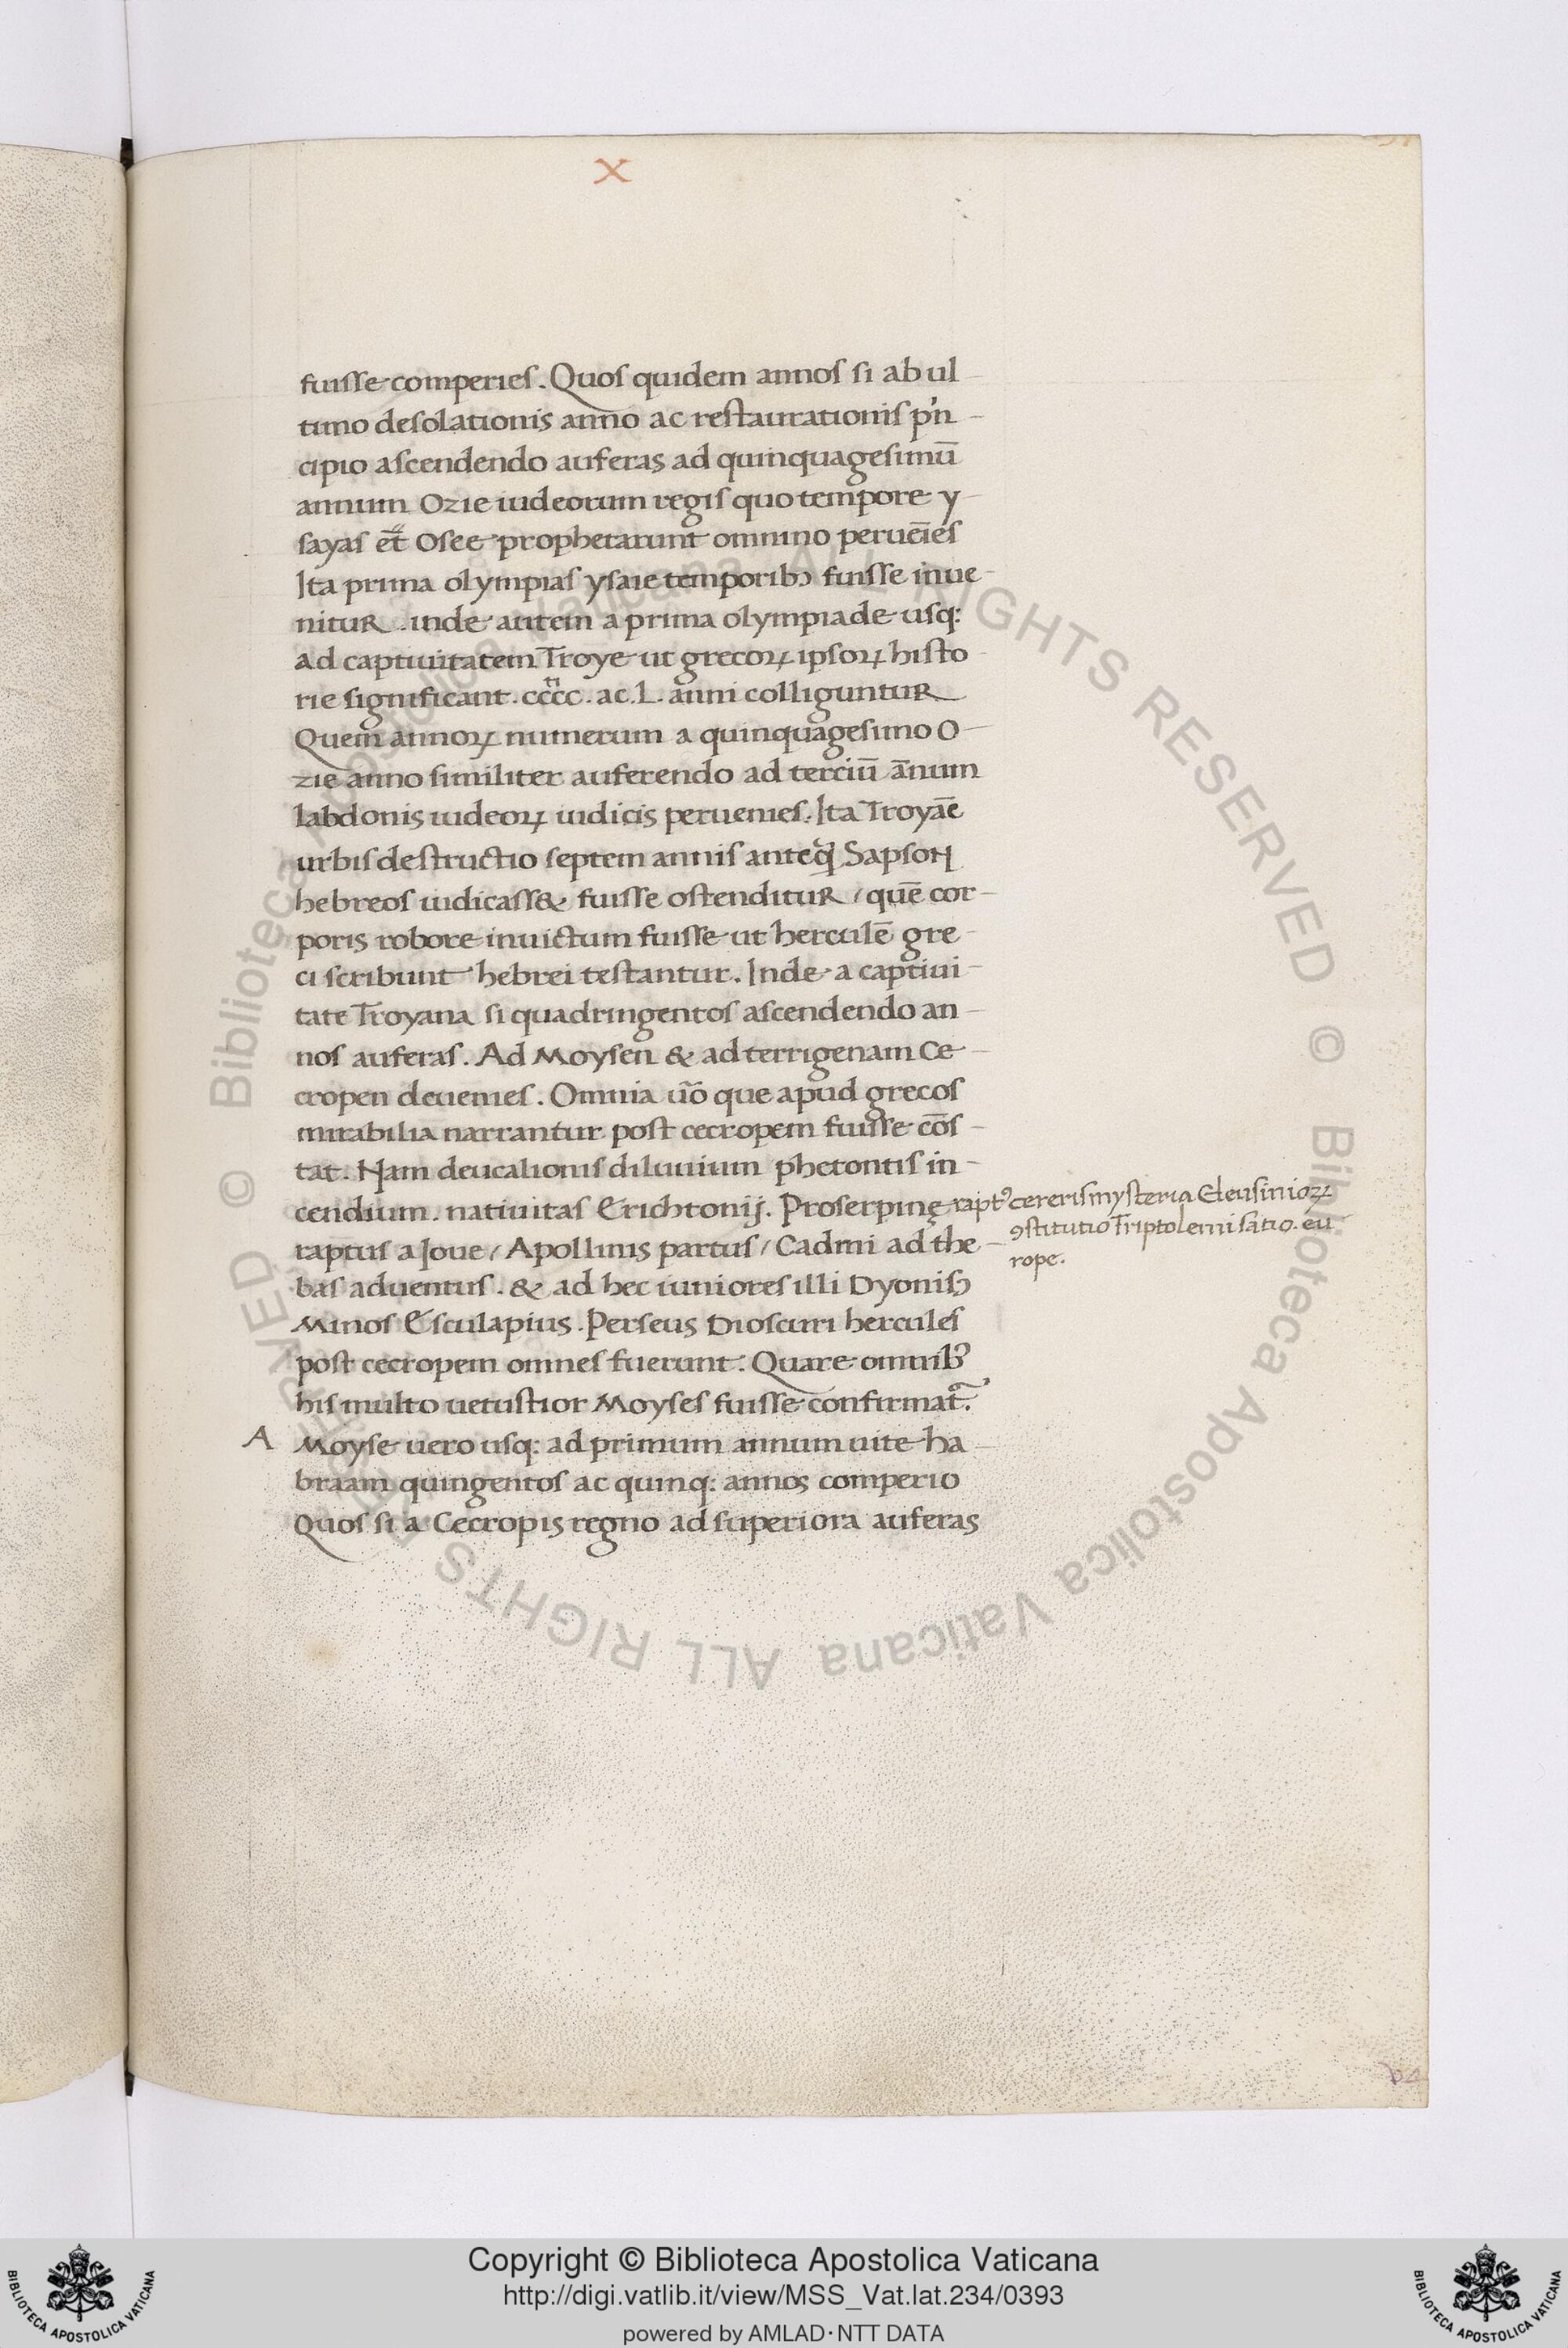 X
fuisse comperies. Quos quidem annos si ab ul
timo desolationis anno ac restaurationis p̓n
cipio ascendendo auferas ad quinquagesimū
annum Ozie iudeorum regis quo tempore y
sayas et Osee prophetarunt omnino peruēies
Ita prima olympias ysaie temporibꝫ fuisse inue
nitur. inde autem a prima olympiade usq:
ad captiuitatem Troye ut grecoꝝ ipsoꝝ histo
rie significant. cccc. ac. L. anni colliguntur
Quem annoꝝ numerum a quinquagesimo O
zie anno similiter auferendo ad terciū ānum
labdonis iudeoꝝ iudicis peruenies. Ita Troyāe
urbis destructio septem annis anteq̄ Sapson
hebreos iudicass& fuisse ostenditur / quē cor
poris robore inuictum fuisse ut herculē gre
ci scribunt hebrei testantur. Inde a captiui
tate Troyana si quadringentos ascendendo an
nos auferas. Ad Moysen & ad terrigenam Ce
cropen deuenies. Omnia ūo que apud grecos
mirabilia narrantur post cecropem fuisse cōs
tat. Nam deucalionis diluuium phetontis in
cendium. natiuitas Erichtonij. Proserpinę
rapt᾿ cereris mysteria Eleusinioꝝ
ꝯstitutio Triptolemi satio. eu
rope.
raptus a Ioue / Apollinis partus / Cadmi ad the
bas aduentus. & ad hec iuniores illi Dyonisꝫ
Minos Esculapius. Perseus Dioscuri hercules
post cecropem omnes fuerunt: Quare omnibꝰ
his multo uetustior Moyses fuisse confirmat᷑.
A Moyse uero usq: ad primum annum uite ha
braam quingentos ac quinq: annos comperio
Quos si a Cecropis regno ad superiora auferas
© Biblioteca Apostolica Vaticana ALL RIGHTS RESERVED © Biblioteca Apostolica Vaticana ALL RIGHTS RESERVED
BIBLIOTECA APOSTOLICA VATICANA
Copyright © Biblioteca Apostolica Vaticana
http://digi.vatlib.it/view/MSS_Vat.lat.234/0393
powered by AMLAD·NTT DATA
BIBLIOTECA APOSTOLICA VATICANA